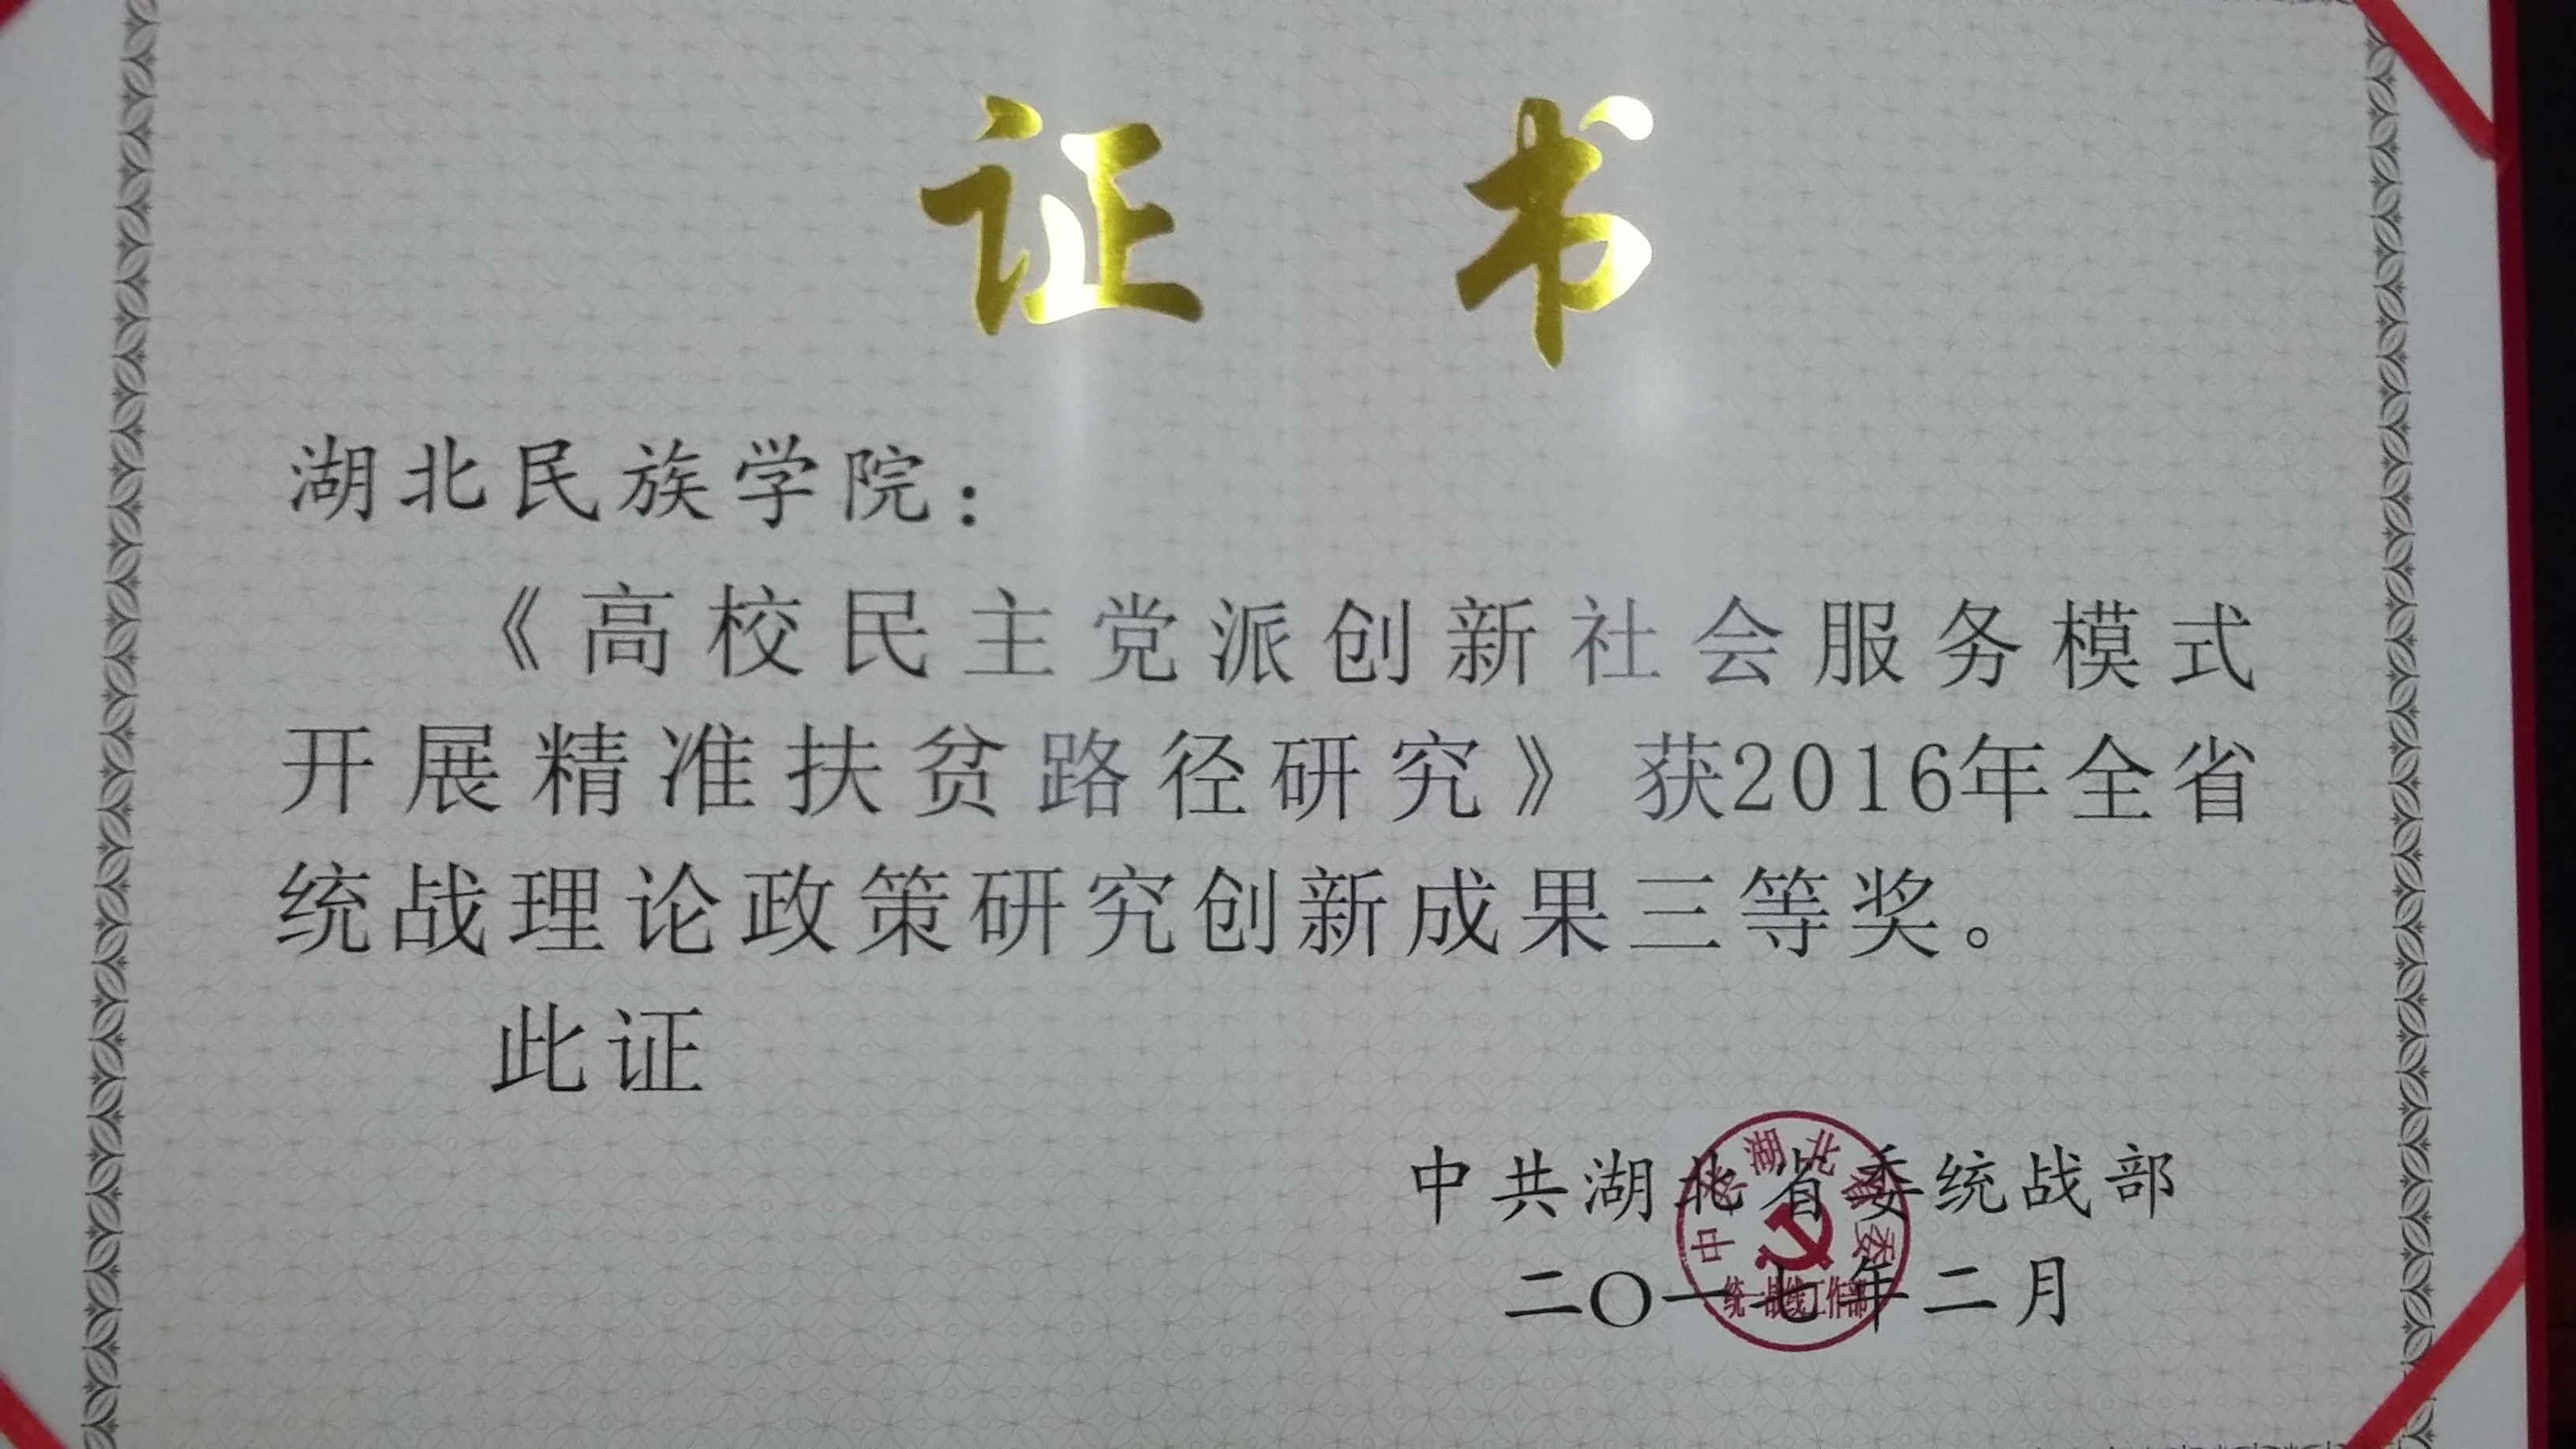 证 书
湖北民族学院：
《高校民主党派创新社会服务模式
开展精准扶贫路径研究》获2016年全省
统战理论政策研究创新成果三等奖。
此证
中共湖北省委统战部
二〇一七年二月
中共湖北省委
统一战线工作部